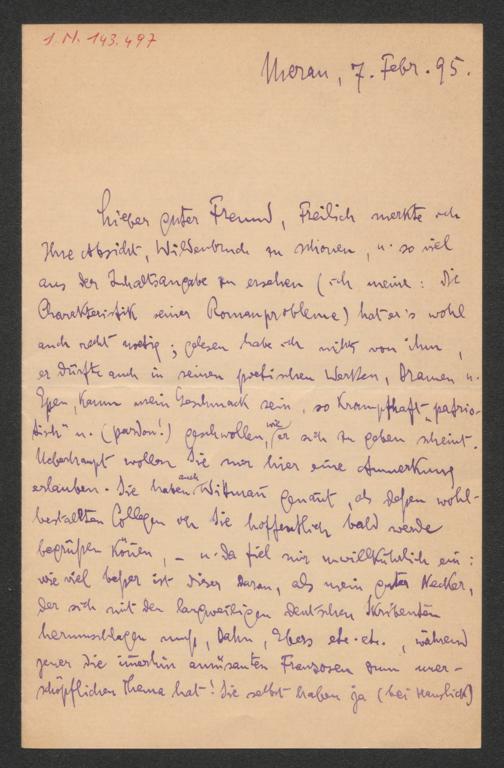 I. N. 143.497
Meran, 7. Febr. 95.
Lieber guter Freund, Freilich merkte ich
Ihre Absicht, Wildenbruch zu schonen, u. so viel
aus der Inhaltsangabe zu ersehen (ich meine: die
Charakteristik seiner Romanprobleme) hat er's wohl
auch recht noetig; gelesen habe ich nichts von ihm,
er dürfte auch in seinen poetischen Werken, Dramen u.
Epen, kaum mein Geschmack sein, so krampfhaft „patrio-
tisch" u. (pardon!) geschwollen, wie er sich zu geben scheint.
Ueberhaupt wollen Sie mir hier eine Anmerkung
erlauben. Sie haben auch Wittmañ genañt, als deßen wohl-
bestallten Collegen ich Sie hoffentlich bald werde
begrüßen köñen, – u. da fiel mir unwillkührlich ein:
wie viel beßer ist dieser daran, als mein guter Necker,
der sich mit den langweiligen deutschen Skribenten
herumschlagen muß, Dahn, Ebers etc. etc., während
jener die im̃erhin amüsanten Franzosen zum uner-
schöpflichen Thema hat! Sie selbst haben ja (bei Hanslick)